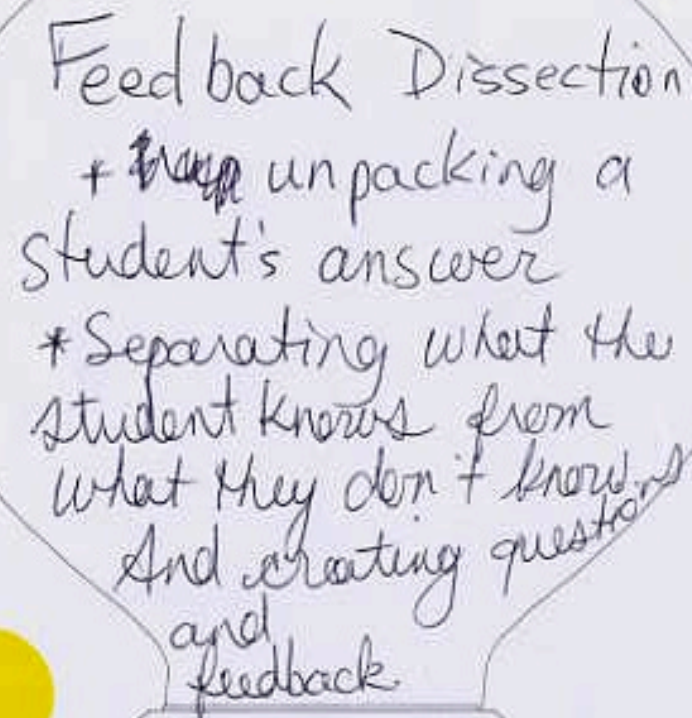 Feedback Dissection
+ unpacking a
student's answer
* Separating what the
student knows from
what they don't know.
And creating questions
and
feedback.